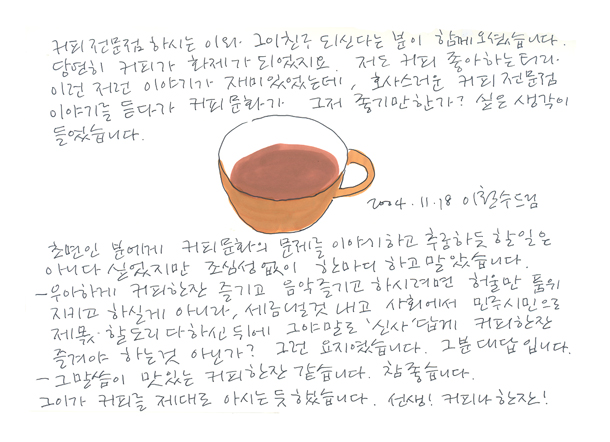 커피전문점 하시는 이와 그이 친구 되신다는 분이 함께 오셨습니다.
당연히 커피가 화제가 되었지요. 저도 커피 좋아하는 터라
이런 저런 이야기가 재미있었는데, 호사스러운 커피전문점
이야기를 듣다가 커피문화가 그저 좋기만한가? 싶은 생각이
들었습니다.
2004. 11. 18 이철수드림
초면인 분에게 커피문화의 문제를 이야기하고 추궁하듯 할일은
아니다 싶었지만 조심성 없이 한마디 하고 말았습니다.
- 우아하게 커피한잔 즐기고 음악즐기고 하시려면 허울만 품위
지키고 하실게 아니라, 세금낼것 내고 사회에서 민주시민으로
제몫·할도리 다하신 뒤에 그야말로 '신사'답게 커피한잔
즐겨야 하는것 아닌가? 그런 요지였습니다. 그분 대답입니다.
- 그말씀이 맛있는 커피한잔 같습니다. 참 좋습니다.
그이가 커피를 제대로 아시는듯 했습니다. 선생! 커피나 한잔!